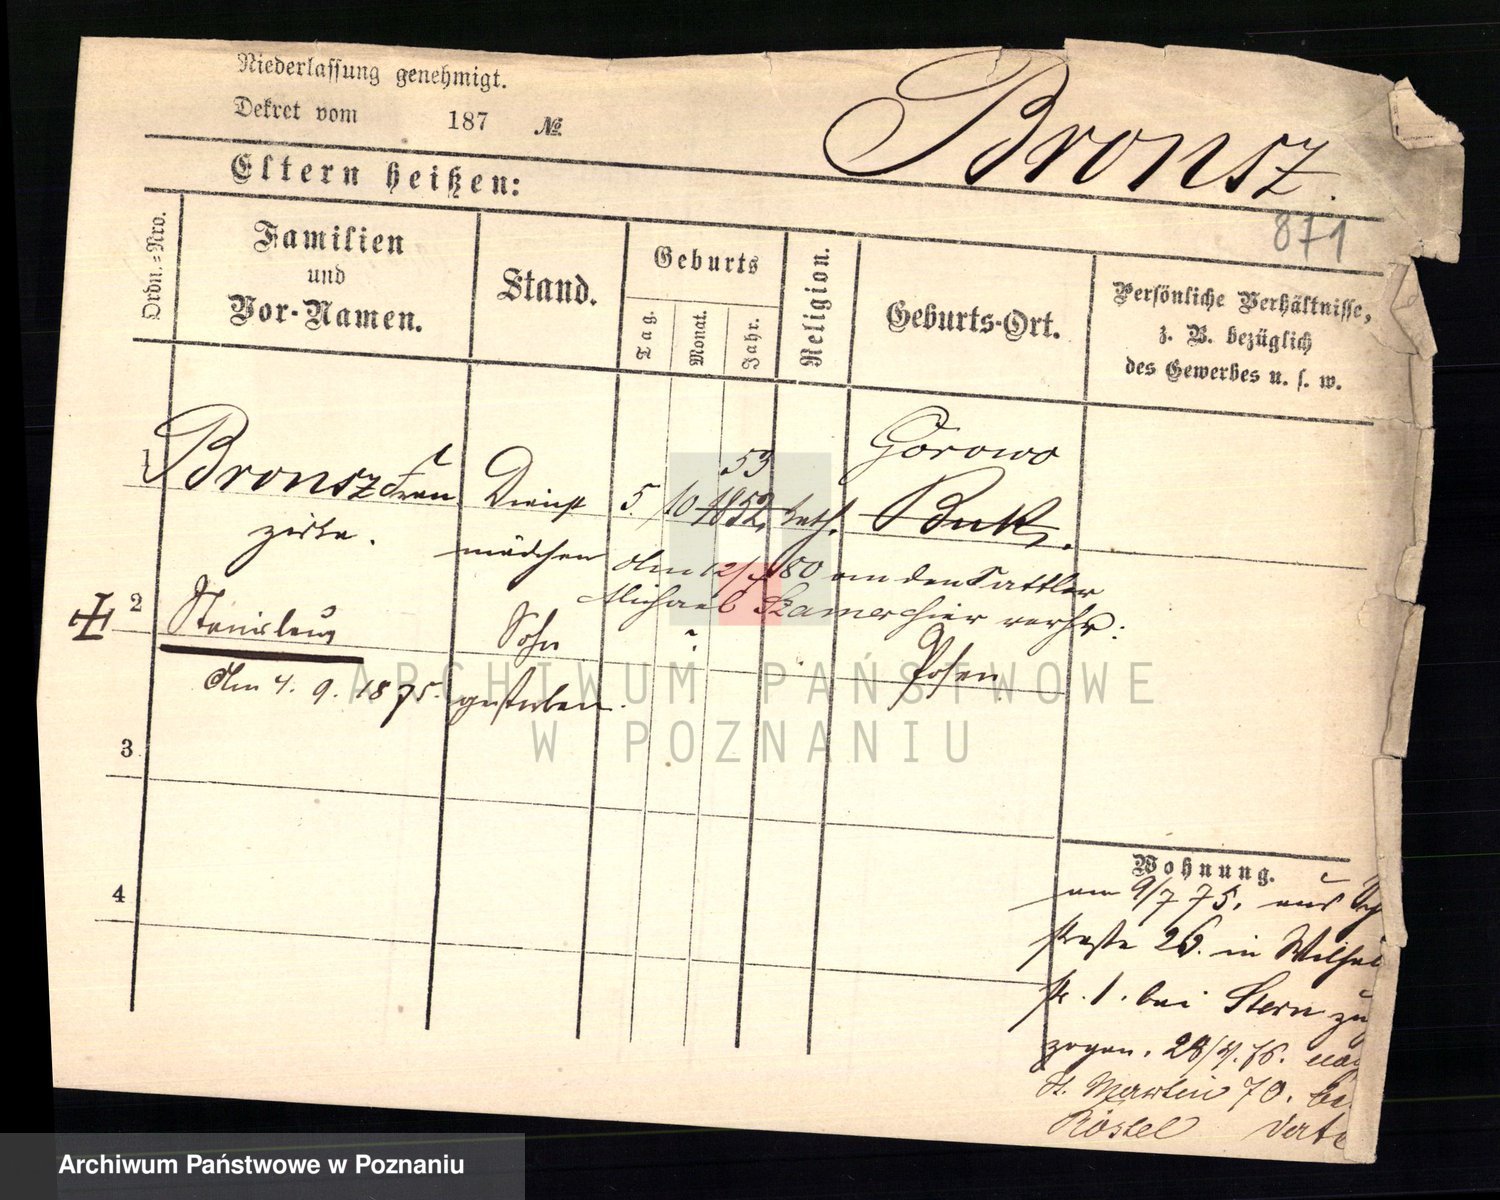 Niederlassung genehmigt.
Dekret vom 187 №
Bronsz.
Eltern heißen:
871
Ordn.=Nro.
Familien
und
Vor-Namen.
Stand.
Geburts
Tag.
Monat.
Jahr.
Religion.
Geburts-Ort.
Persönliche Verhältnisse,
z. B. bezüglich
des Gewerbes u. s. w.
Gorowo
53
1 Bronsz Fran Dienst 5. /10 1852. kath. Buk.
ziska. mädchen
Am 12/ 80 an den Sattler
Michael hier verh:
2 Stanislaus Sohn ? Posen
Am 4. 9. 1875. gestorben.
3
4
Wohnung.
am 9/7 75. aus
straße 26. in Wilhel
str. 1. bei Stern zu
zogen. 28/4. 76. nac
St. Martin 70. be
Rösel
ARCHIWUM PAŃSTWOWE
W POZNANIU
Archiwum Państwowe w Poznaniu